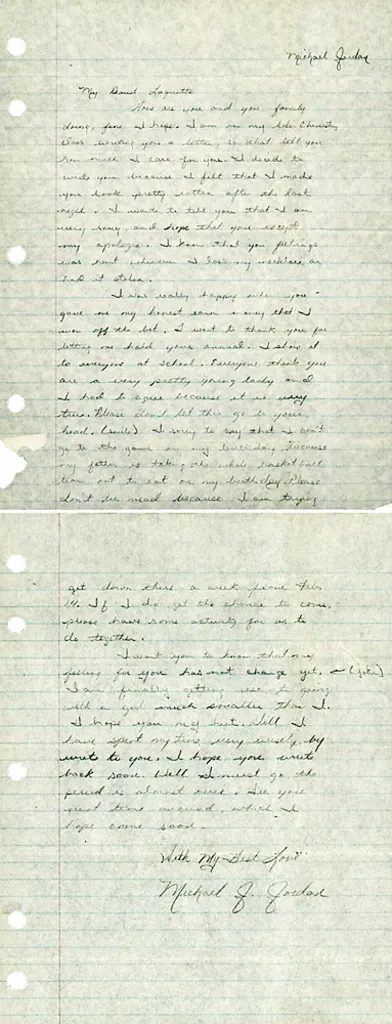 Michael Jordan
My Dearest Laquette
How are you and you family
doing, fine I hope. I am in my Adv. Chemistry
class writing you a letter, so that tell you
how much I care for you. I decide to
write you because I felt that I made
you look pretty rotten after the last
night. I want to tell you that I am
very sorry, and hope that you except
my apologie. I know that you feelings
was hurt whenever I loss my necklace or
had it stolen.
I was really happy when you
gave me my honest earn money that I
won off the bet. I want to thank you for
letting me hold your annual. I show it
to everyone at school. Everyone think you
are a very pretty young lady and
I had to agree because it is very
true. Please don't let this go to your
head. (smile) I sorry to say that I can't
go to the game on my birthday because
my father is taking the whole basketball
team out to eat on my birthday. Please
don't be mad because I am trying
get down there a week from Feb.
14. If I do get the chance to come,
please have some activity for us to
do together.
I want you to know that my
feeling for you has not change yet. — (joke)
I am finally getting use to going
with a girl much smaller than I.
I hope you my
have spent my time very wisely by
write to you. I hope you write
back soon. Well I must go the
period is almost over. See you
next time around, which I
hope come soon.
With My Best Love
Michael J. Jordan